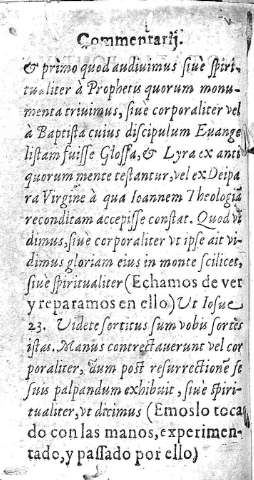 Commentarij.
& primo quod audiuimus siuè spiri-
tualiter à Prophetis quorum monu-
menta triuimus, siuè corporaliter vel
à Baptista cuius discipulum Euange
listam fuisse Glossa, & Lyra ex anti
quorum mente testantur, vel ex Deipa
ra Virgine à qua Ioannem Theologiã
reconditam accepisse constat. Quod vi
dimus, siuè corporaliter vt ipse ait vi-
dimus gloriam eius in monte scilicet,
siuè spiritualiter (Echamos de ver
y reparamos en ello) Vt Iosue
23. Uidete sortitus sum vobis sortes
istas. Manus contrectauerunt vel cor
poraliter, dum post resurrectionẽ se
suis palpandum exhibuit, siuè spiri-
tualiter, vt dicimus (Emoslo toca
do con las manos, experimen-
tado, y passado por ello)